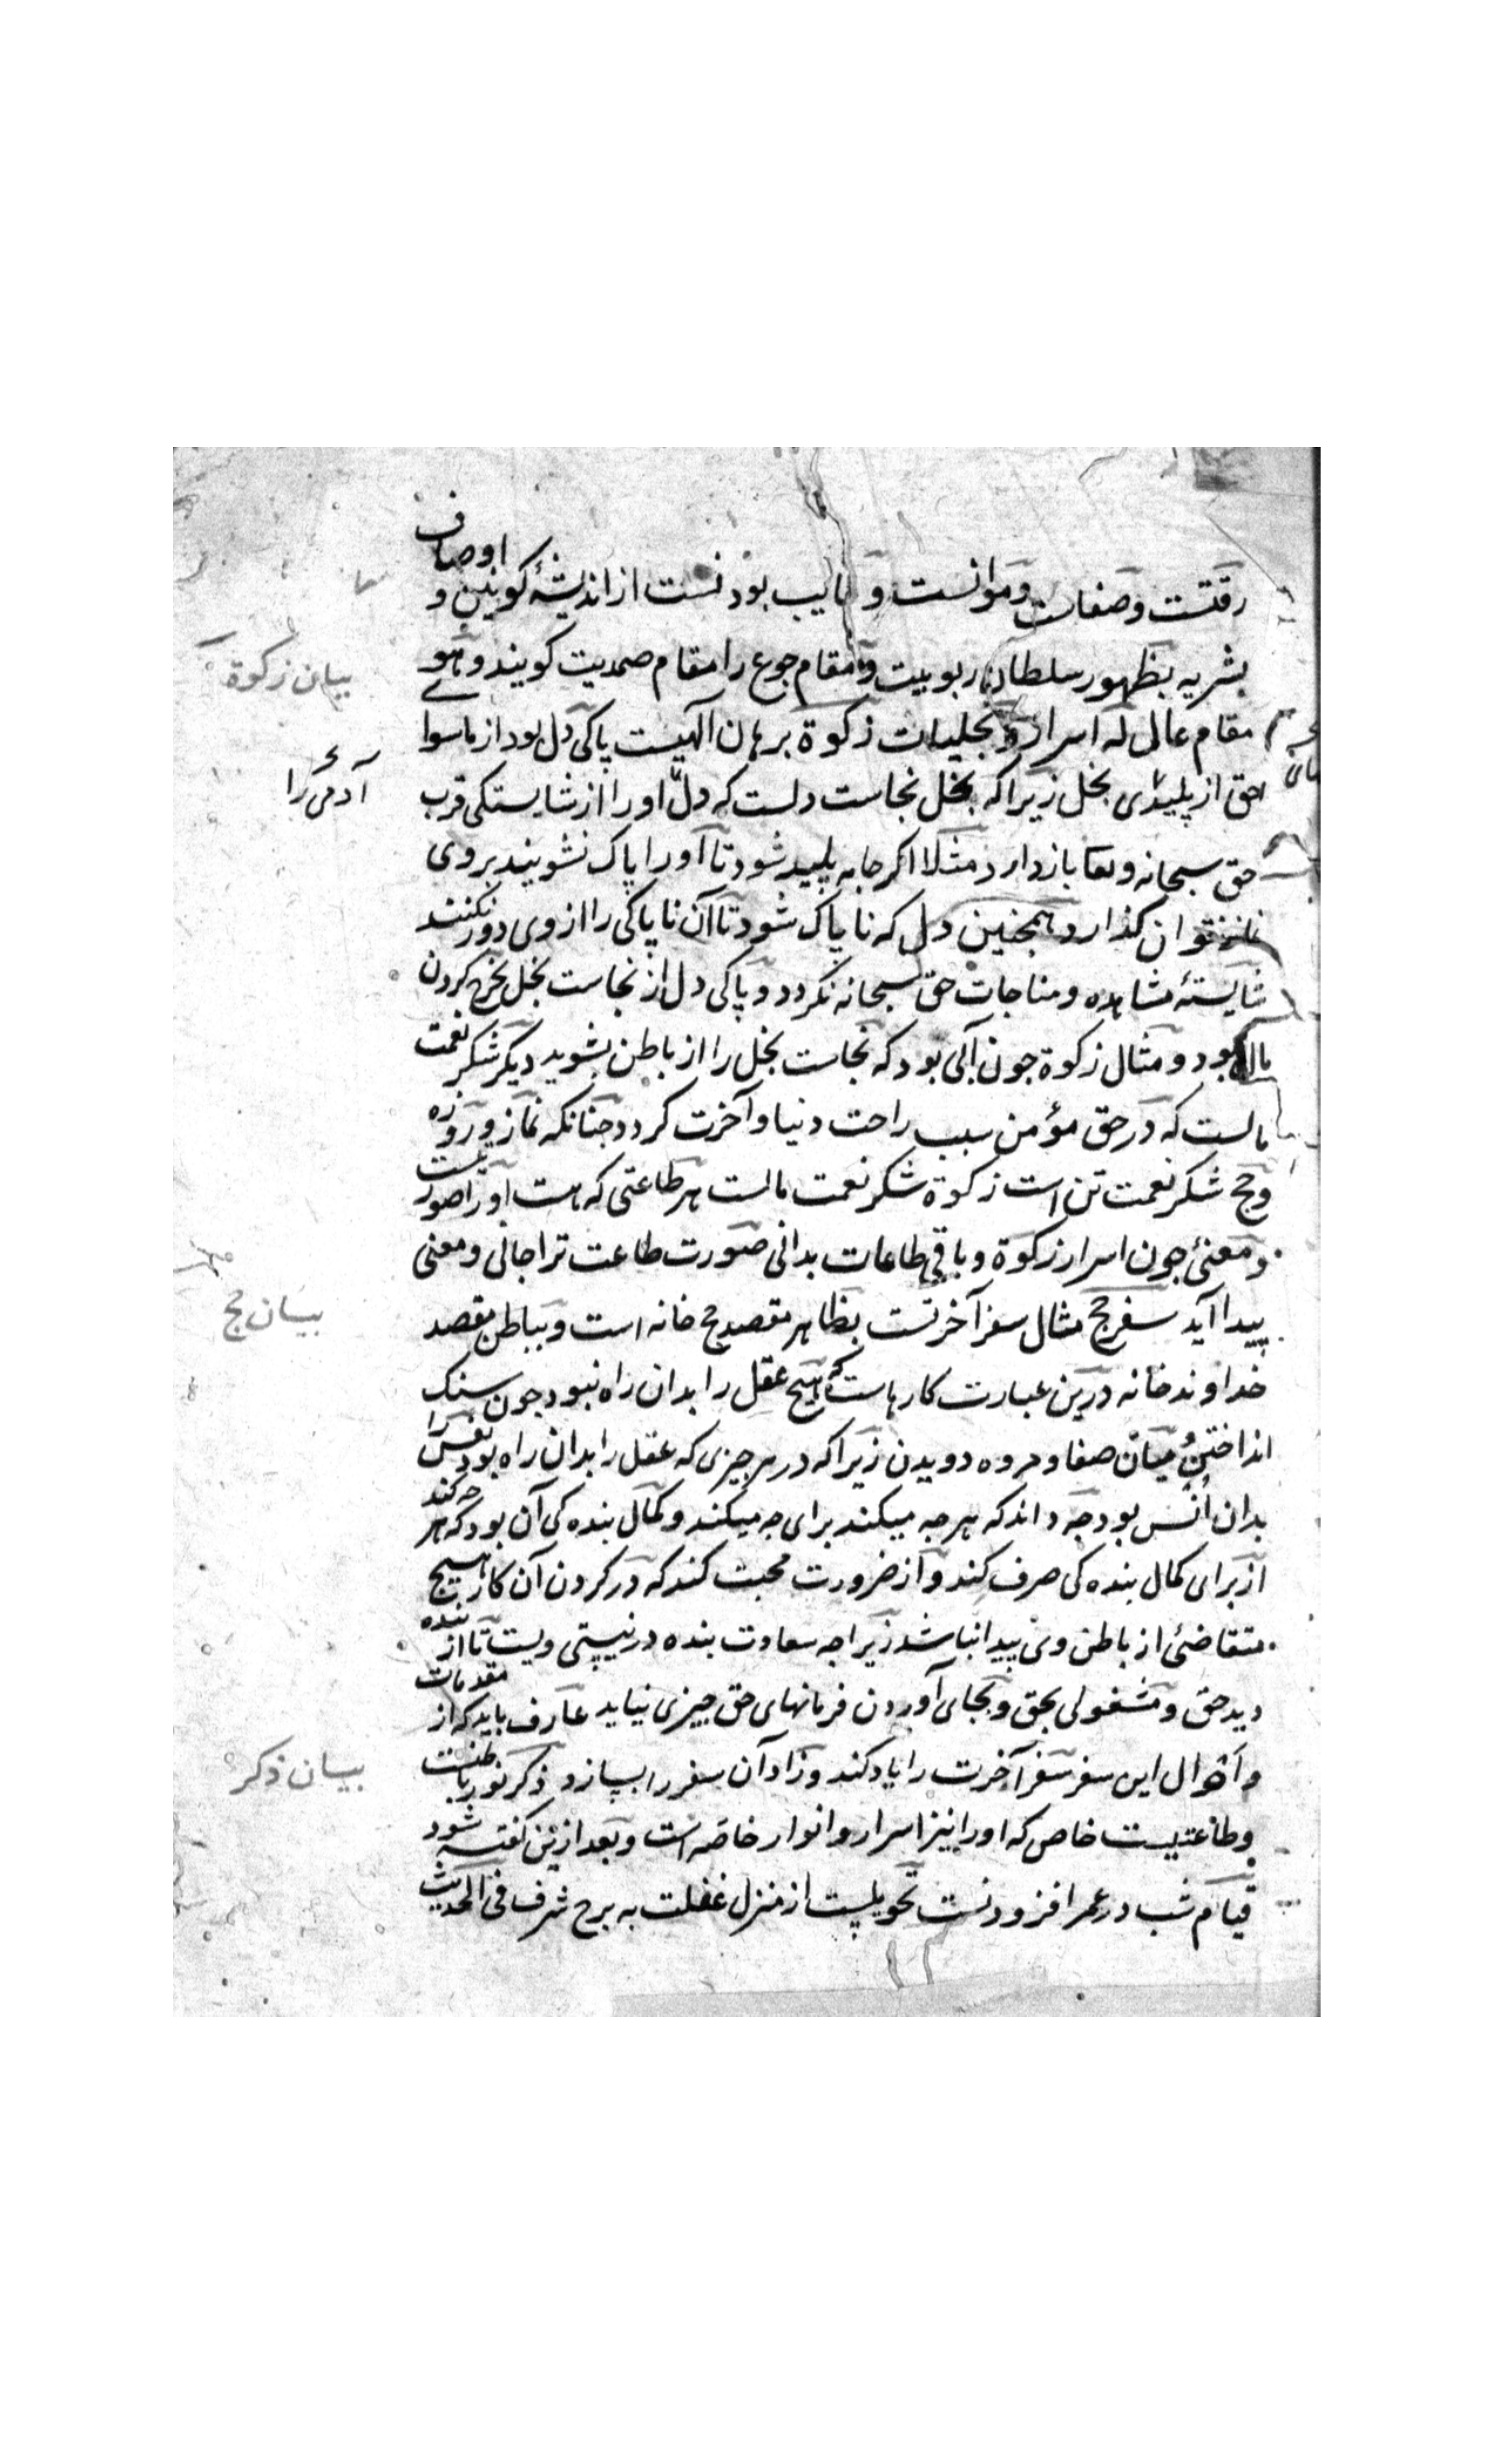 رقتست وصفاست وموانست و بودنست از اندیشهٔ کونین و اوصاف
بشریه بظهور سلطان ربوبیت و مقام جوع را مقام صمدیت کویند و هو
مقام عالی له اسرار و تجلیات زکوة برهان الهیست پاکی دل بود از ماسوا
حق از پلیدی بخل زیرا که بخل نجاست دلست که دل او را از شایستکی قرب
حق سبحانه وتعا بازدارد مثلا اکر جامه پلید شود تا آورا پاک نشویند بروی
نماز نتوان کذارد همچنین دل که ناپاک شود تا آن ناپاکی را از وی دور نکنند
شایستهٔ مشاهده و مناجات حق سبحانه نکردد و پاکی دل از نجاست بخل بخرج کردن
مال بود و مثال زکوة جون آبی بود که نجاست بخل را از باطن بشوید دیکر شکر نعمت
مالست که در حق مؤمن سبب راحت دنیا و آخرت کردد جنانکه نماز و روزه
و حج شکر نعمت تن است زکوة شکر نعمت مالست هر طاعتی که هست او را صورتیست
و معنیٔ جون اسرار زکوة و باقی طاعات بدانی صورت طاعت ترا جانی و معنی
پیدا آید سفر حج مثال سفر آخرتست بظاهر مقصد حج خانه است و بباطن مقصد
خداوند خانه درین عبارت کارهاست که هیج عقل را بدان راه نبود جون سنک
انداختن و میان صفا و مروه دویدن زیرا که در هر جیزی که عقل را بدان راه بود نفس را
بدان اُنس بود جه داند که هر جه میکند برای جه میکند و کمال بنده کی آن بود که هر جه کند
از برای کمال بنده کی صرف کند و از ضرورت محبت کند که در کردن آن کار هیج
متقاضئ از باطن وی پیدا نباشد زیرا جه سعادت بنده در نیستی ویست تا از بنده
دید حق و مشغولی بحق و بجای آوردن فرمانهای حق جیزی نیاید عارف باید که از مقدمات
و احوال این سفر سفر آخرت را یاد کند و زاد آن سفر را بسازد ذکر نور باطنست
و طاعتیست خاص که او را نیز اسرار و انوار خاصه است و بعد ازین کفته شود
قیام شب در عمر افزودنست تحویلیست از منزل غفلت به برج شرف فی الحدیث
بیان زکوة
آدمی را
بیان حج
بیان ذکر